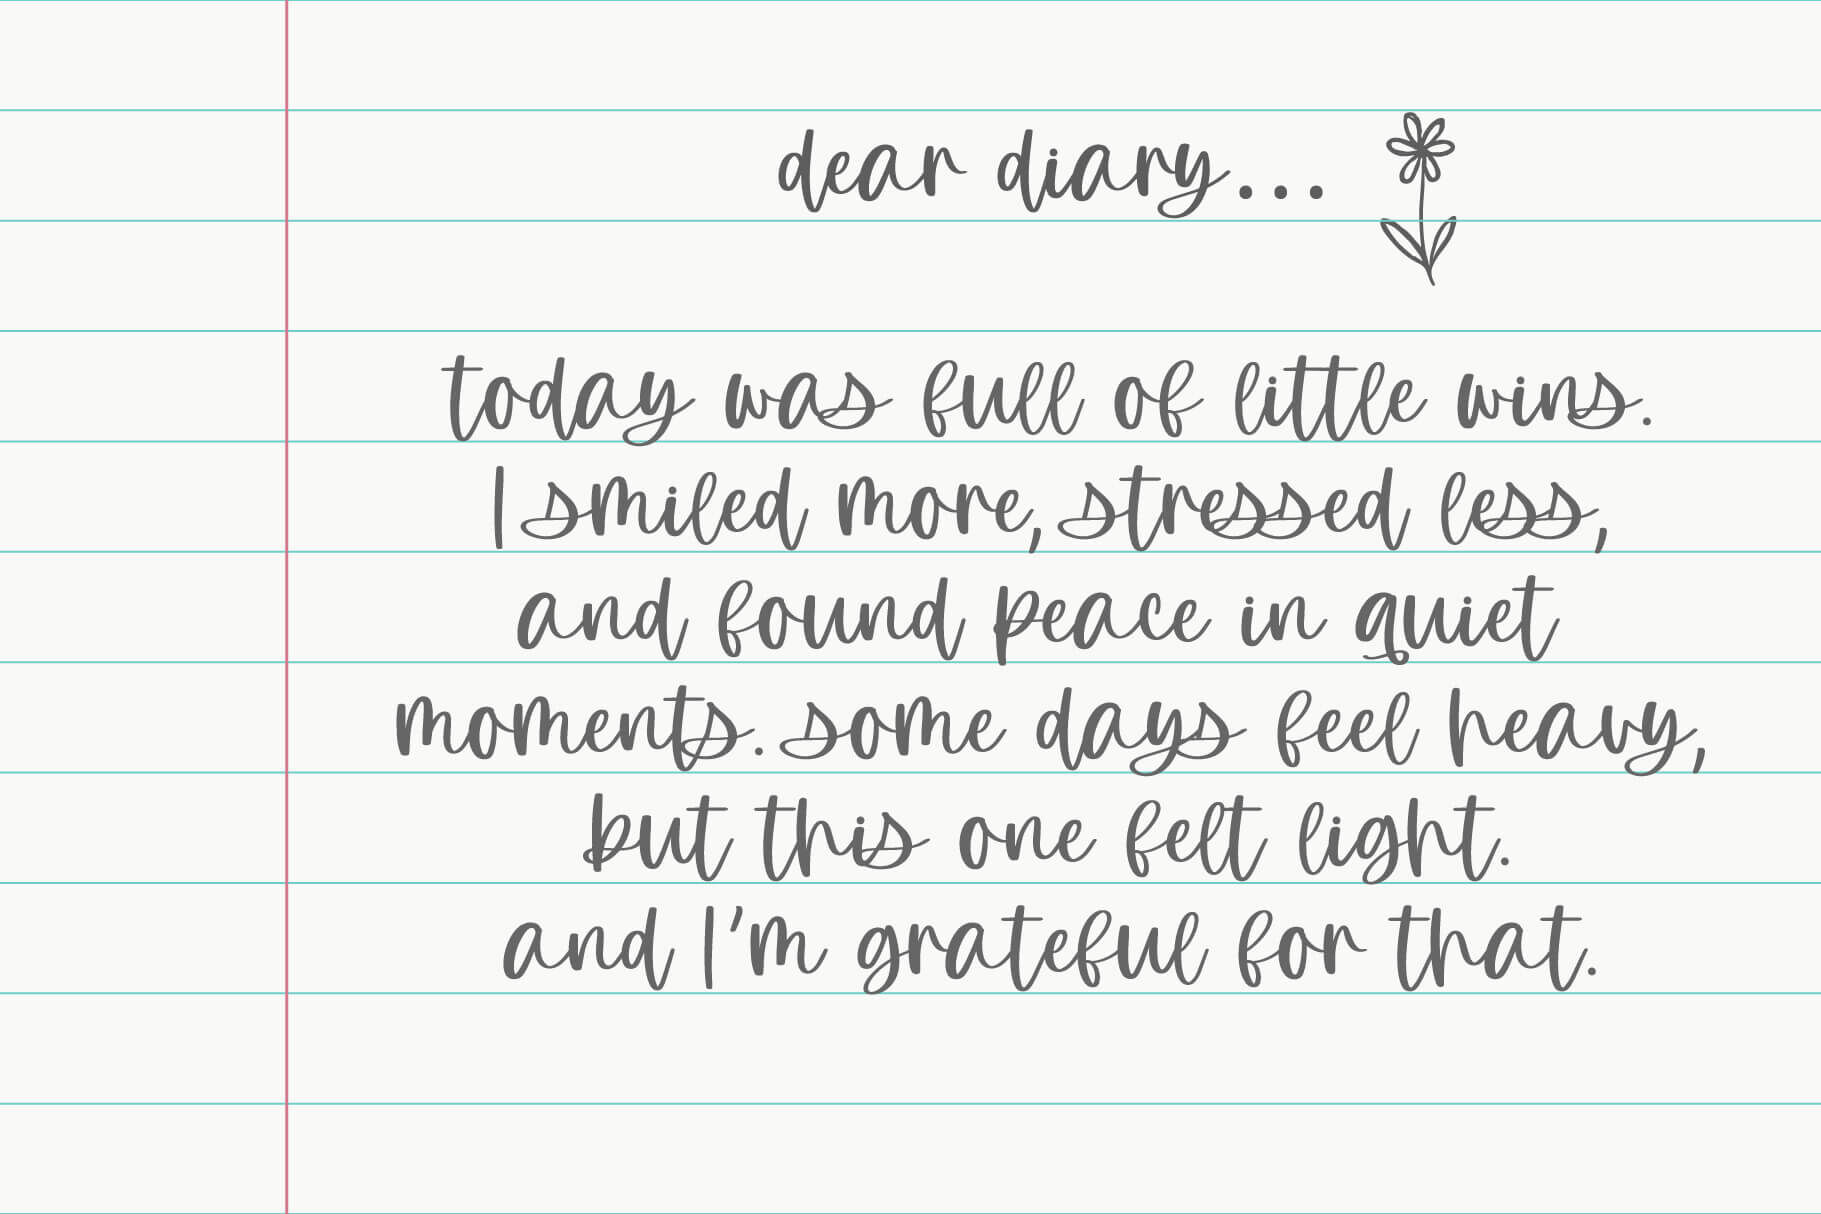 dear diary...
today was full of little wins.
I smiled more, stressed less,
and found peace in quiet
moments. some days feel heavy,
but this one felt light.
and I'm grateful for that.